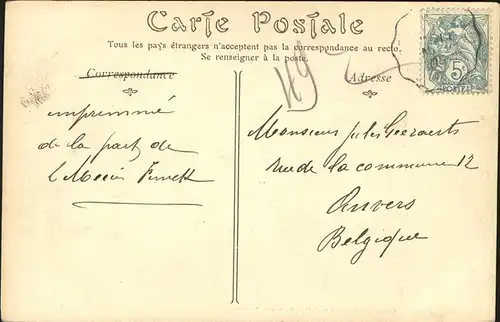 Carte Postale
Tous les pays étrangers n'acceptent pas la correspondance au recto.
Se renseigner à la poste.
Correspondance
Adresse
5c
POSTES
imprimé
de la part de
Monsieur Jules Geeraerts
rue de la commune 12
Anvers
Belgique